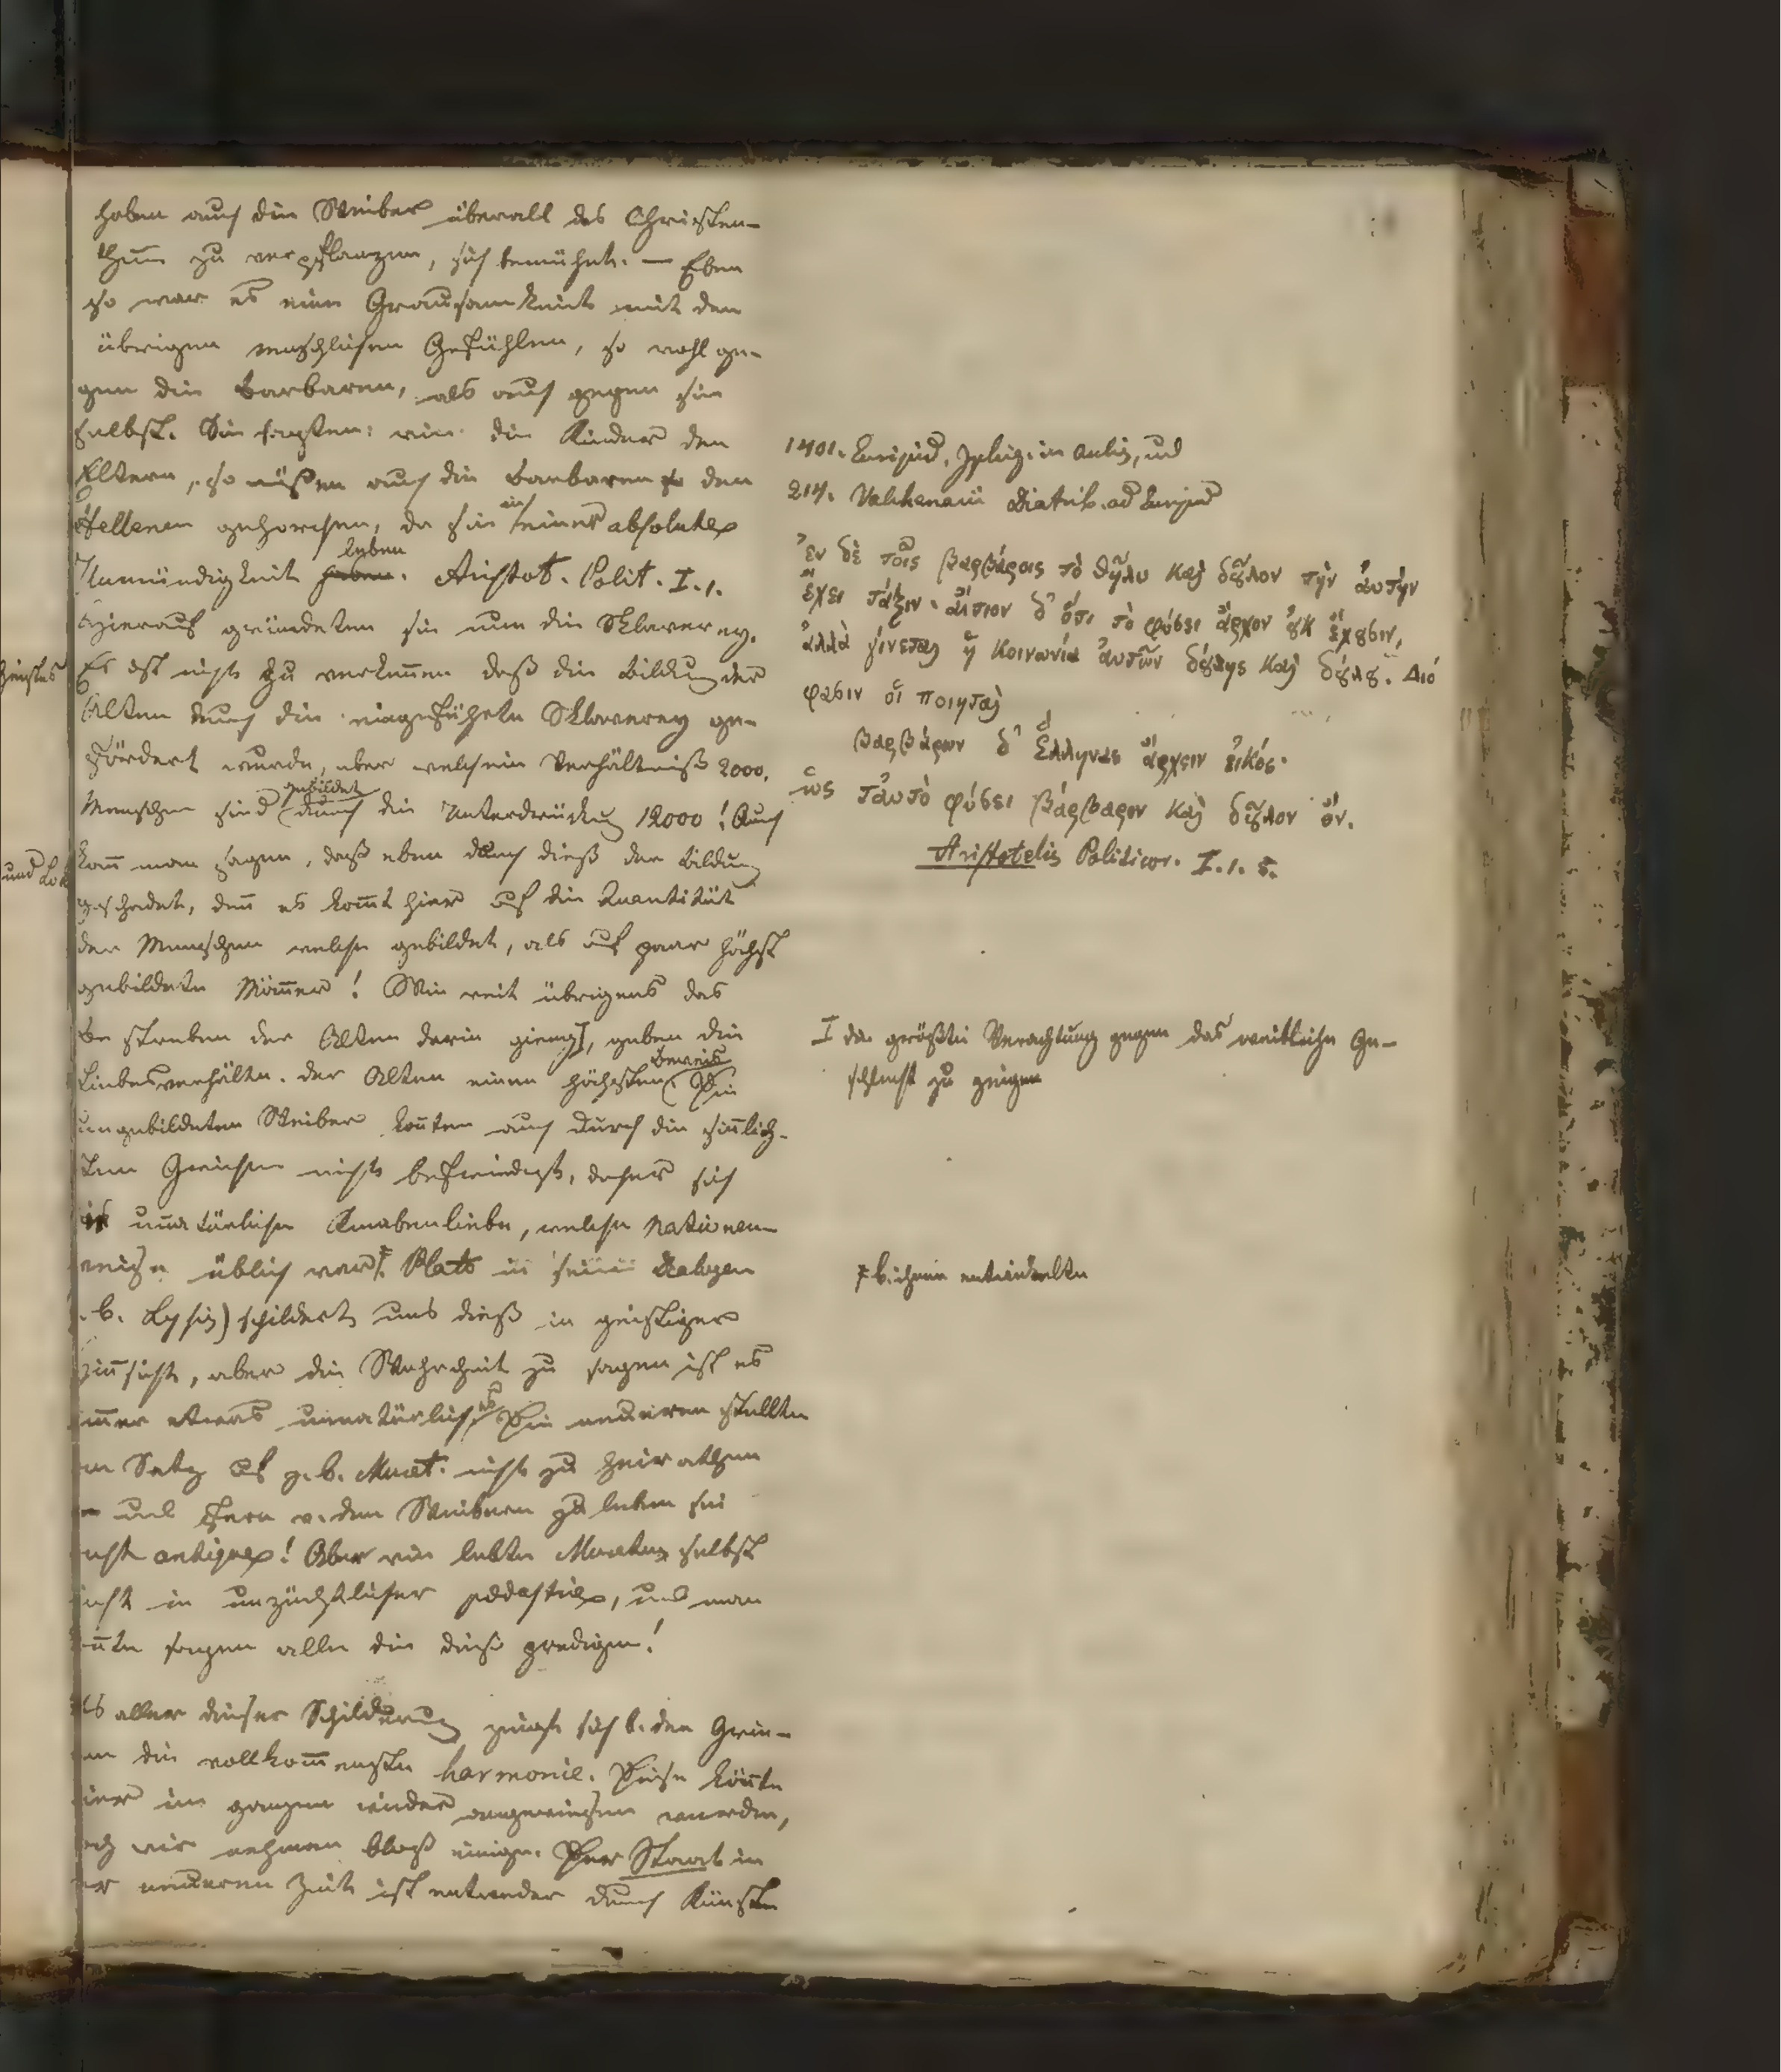 haben auch die Weiber überall das Christen-
thum zu verpflanzen, sich bemüht. — Eben
so war es eine Grausamkeit mit den
übrigen menschlichen Gefühlen, so wohl ge-
gen die Barbaren, als auch gegen sie
selbst. Sie sagten: wie die Kinder den
Eltern, so müßen auch die Barbaren den
Hellenen gehorchen, da sie in einer absoluten
Unmündigkeit leben. Aristot. Polit. I. 1.
Hierauf gründeten sie nun die Sklaverey.
Es ist nicht zu verkennen daß die Bildung der
Alten durch die eingeführte Sklaverey ge-
fördert wurde, aber welch ein Verhältniß 2000.
Menschen sind gebildet durch die Unterdrückung 12000! Auch
kann man sagen, daß eben durch dieß der Bildung
geschadet, denn es kommt hier auf die Quantität
der Menschen welche gebildet, als auf paar höchst
gebildete Männer! Wie weit übrigens das
Bestreben der Alten darin gieng I, geben die
Liebesverhältn. der Alten einen höchsten Beweis. Die
ungebildeten Weiber konnten auch durch die sinnlich-
sten Griechen nicht befriedigt, daher sich
unnatürliche Knabenliebe, welche Nationen
üblich war. Plato in seinen Dialogen
. b. Lysis) schildert uns dieß in geistiger
Hinsicht, aber die Wahrheit zu sagen ist es
immer etwas unnatürliches. Die neueren stellten
Satz auf z. b. Muret. nicht zu heirathen
und fern v. den Weibern zu leben sei
antiques! Aber wie lebte Muretus selbst
nicht in unzüchtlicher pädastrie, und man
könnte sagen alle die dieß predigen!
aller dieser Schilderung zeigt sich b. den Grie-
die vollkommenste harmonie. Diese könnte
hier im ganzen wieder angewiesen werden,
wir nehmen bloß einige. Der Staat in
der neueren Zeit ist entweder durch Künste
1401. Euripid. Iphig. in Aulis, und
214. Valckenarii Diatrib. ad Euripid
Ἐν δὲ τοῖς βαρβάροις τὸ θῆλυ καὶ δοῦλον τὴν ἀυτὴν
ἔχει τάξιν· αἴτιον δ' ὅτι τὸ φύσει ἄρχον οὐκ ἔχουσιν,
ἀλλὰ γίνεται ἡ κοινωνία ἀυτῶν δούλης καὶ δούλου. Διό
φασιν οἱ ποιηταὶ
βαρβάρων δ' Ἕλληνας ἄρχειν εἰκός·
ὡς ταὐτὸ φύσει βάρβαρον καὶ δοῦλον ὄν.
Aristotelis Politicor. I. 1. 5.
I die größte Verachtung gegen das weibliche Ge-
schlecht zu zeigen
entwickelte